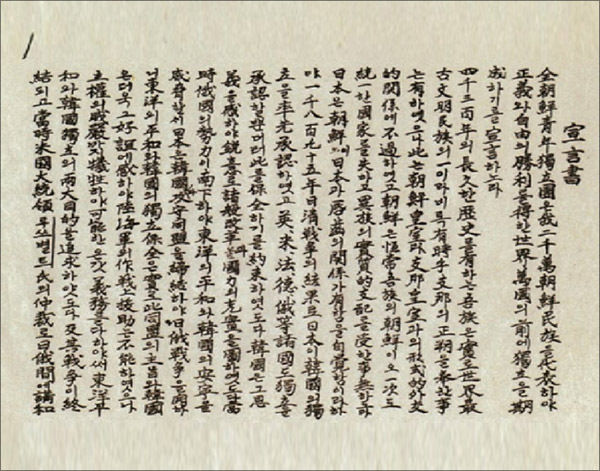 宣言書
全朝鮮青年獨立團은我二千萬朝鮮民族을代表하야
正義와自由의勝利를得한世界萬國의前에獨立을期
成하기를宣言하노라
四千三百年의長久한歷史를有하는吾族은實로世界最
古文明民族의一이라비록有時乎支那의正朔을奉한事
는有하엿으나此는朝鮮皇室과支那皇室과의形式的外交
的關係에不過하엿고朝鮮은恒常吾族의朝鮮이오一次도
統一한國家를失하고異族의實質的支配를受한事無하다
日本은朝鮮이日本과唇齒의關係가有함을自覺함이라하
야一千八百九十五年日清戰爭의結果로日本이韓國의獨
立을率先承認하엿고英米法德俄等諸國도獨立을
承認할뿐더러此를保全하기를約束하엿도다韓國은그恩
義를感하야銳意로諸般改革과國力의充實을圖하엿도다當
時俄國의勢力이南下하야東洋의平和와韓國의安寧을
威脅할새日本은韓國과攻守同盟을締結하야日俄戰爭을開하
니東洋의平和와韓國의獨立保全은實로此同盟의主旨와韓國
은더욱그好誼에感하야陸海軍의作戰上援助는不能하엿으나
主權의威嚴까지犧牲하야可能한온갓義務를다하야써東洋平
和와韓國獨立의兩大目的을追求하얏도다及其戰爭이終
結되고當時米國大統領루쓰벨트氏의仲裁로日俄間에講和